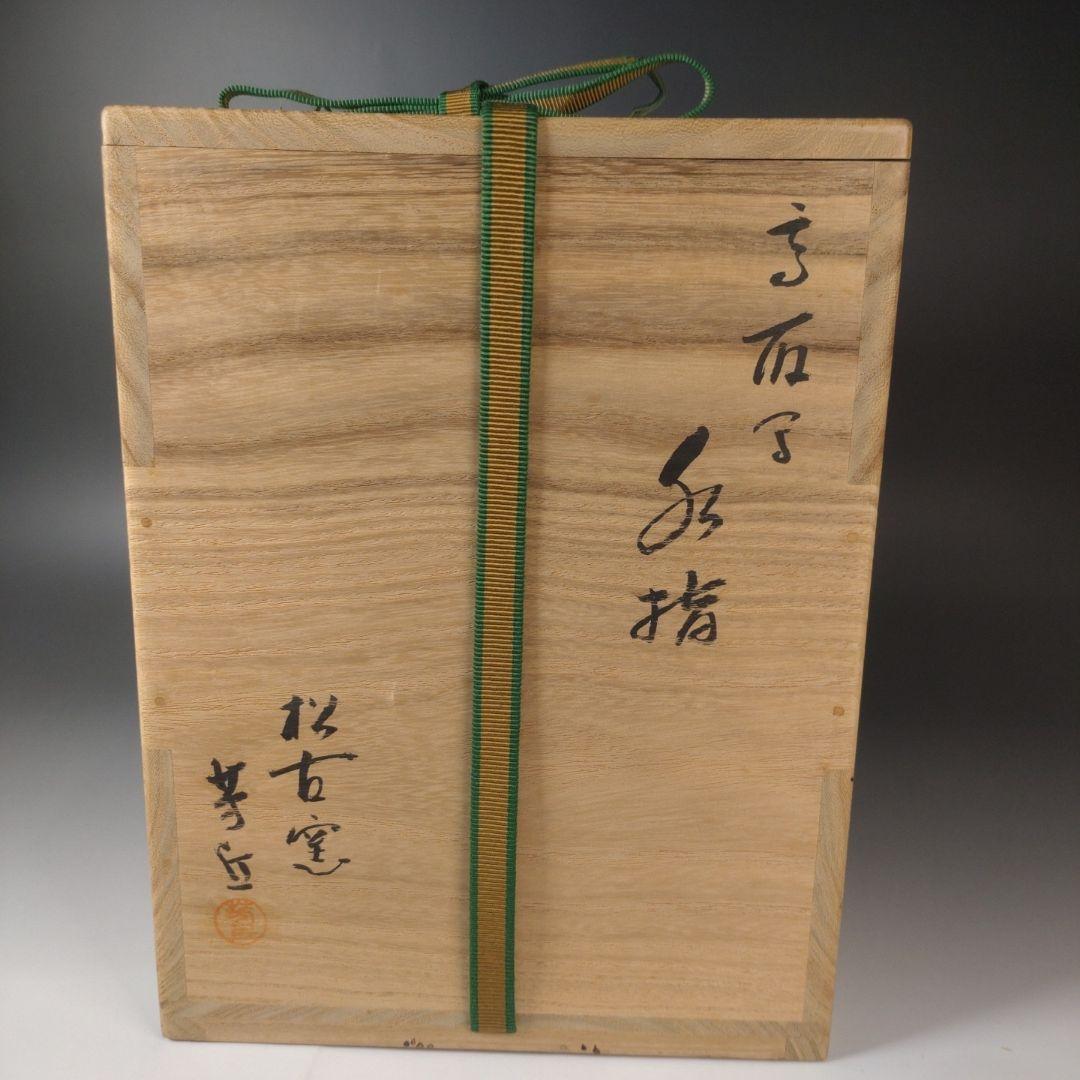 高取写
水指
松古窯
芳丘